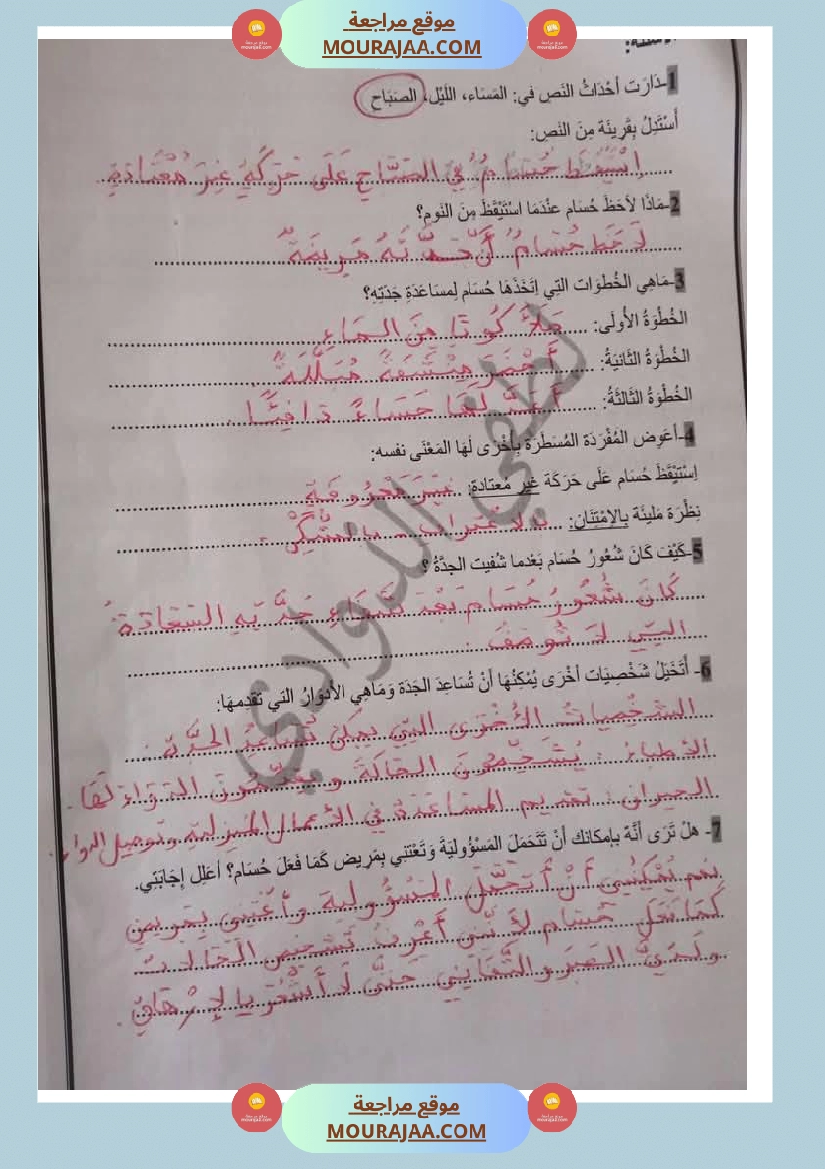 موقع مراجعة
MOURAJAA.COM
الأسئلة:
1-دَارَت أحْدَاثُ النَص في: المَسَاء، اللَيْل، الصَبَاح
أَسْتَدِلُ بِقَرِينَة مِنَ النَص:
اِسْتَيْقَظَ حُسَامٌ فِي الصَّبَاحِ عَلَى حَرَكَةٍ غَيْرَ مُعْتَادَةٍ
2-مَاذَا لَاحَظَ حُسَام عنْدَمَا اسْتَيْقَظَ مِنَ النَوم؟
لَاحَظَ حُسَامٌ أَنَّ جَدَّتَهُ مَرِيضَةٌ
3-مَاهِي الخُطُوَات التِي اِتَخَذَهَا حُسَام لِمسَاعَدَةِ جَدَتِهِ؟
الخُطْوَةُ الأُولَى: مَلَأَ كُوبًا مِنَ المَاءِ
الخُطْوَةُ الثَانِيَةُ: أَحْضَرَ مِنْشَفَةً مُبَلَّلَةً
الخُطْوَةُ الثَالثَةُ: أَعَدَّ لَهَا حَسَاءً دَافِئًا
4-أعَوِض المُفْرَدَة المُسَطَرَة بِأخْرَى لَهَا المَعْنَى نفسه:
اِسْتَيْقَظَ حُسَام عَلَى حَرَكَة غَيرِ مُعتَادة: غَيْرَ مَعْرُوفَةٍ
نِظْرَة مَليئَة بِالاِمْتِنَان: بالاعْتِرَاف - بِالشُّكْرْ.
5-كَيْفَ كَانَ شُعُورُ حُسَام بَعْدما شُفيت الجدَّةُ ؟
كَانَ شُعُورُ حُسَام بَعْدَ شِفَاءِ جَدَّتِهِ السَّعَادَةُ
التِي لَا تُوصَفُ.
6- أتَخَيَلُ شَخْصِيَات أخْرَى يُمْكِنُهَا أنْ تُسَاعِدَ الجَدَة وَمَاهِي الأدوَارُ التي تَقَدِمهَا:
الشخصيات الأخرى التي يمكن تُسَاعدُ الجدَّة :
الأطباء : يُشَخِّصُونَ الحَالَةَ ويقدّمُونَ الدَوَاءَ لَهَا.
الجيران: تقديم المساعدة في الأعمال المنزلية وتوصيل الدواء.
7- هلْ تَرَى أنَّهُ بإمكَانك أنْ تَتَحَمَلَ المَسْؤُوليَةَ وَتَعْتَنِي بِمَرِيض كَمَا فَعَلَ حُسَام؟ أعَلِل إجَابَتِي.
نعم يُمْكِنُنِي أَنْ أَتَحَمَّلَ المَسْؤُولية وأَعْتَنِي بِمَرِيضٍ
كَمَا فَعَلَ حُسَام لأَنَّنِي أَعْرِفُ تَشْخِيصَ الحَالات
ولَدَيَّ الصَبَرَ والتَّفَانِي حَتَّى لَا أَشْعُرَ بالإِرْهَاقِ.
لطفي الذوادي
موقع مراجعة
MOURAJAA.COM